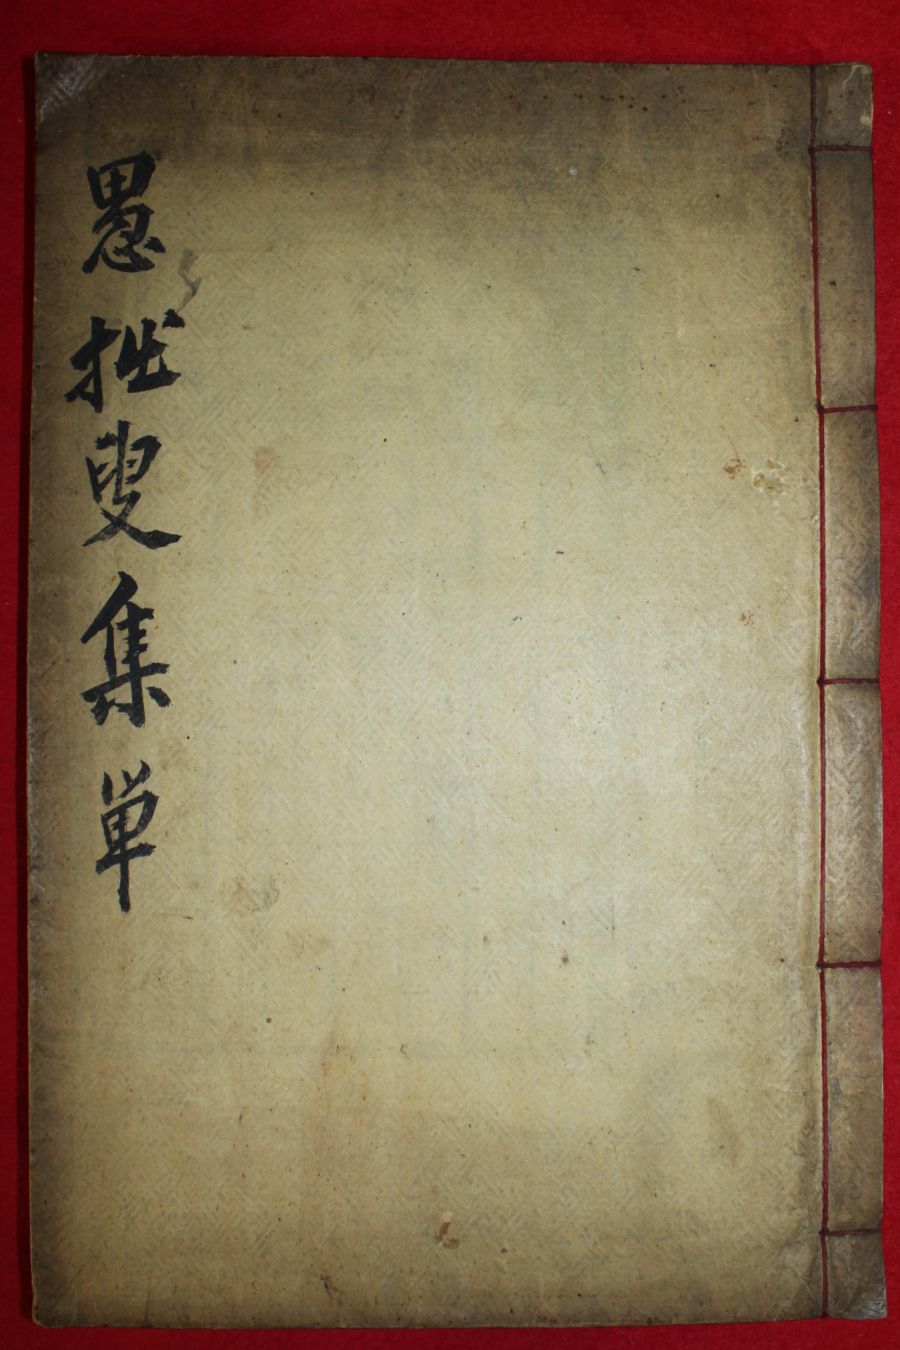 愚拙叟集單